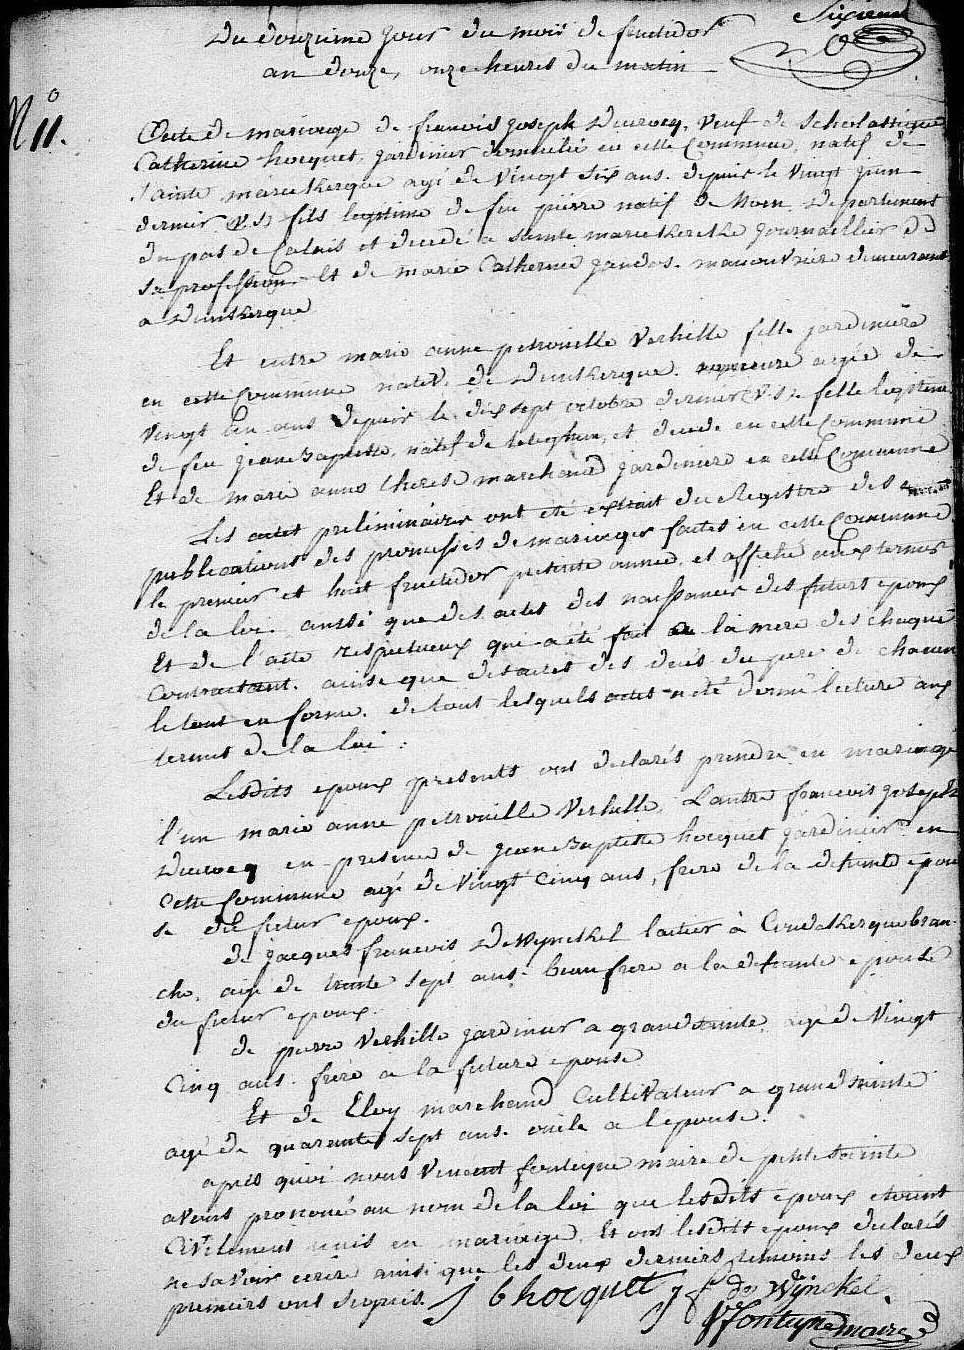 Sixieme
Du douzieme jour du mois de fructidor
an douze, onze heures du matin
N° 11.
Acte de mariage de francois joseph Ducrocq, veuf de Scholastique
Catherine hocquet, jardinier domicilié en cette Commune, natif de
Sainte mariekerque agé de Vingt six ans depuis le Vingt juin
dernier v.s. fils legitime de feu pierre natif de Departement
du pas de Calais et decedé a Sainte mariekerke journaillier de
sa profession - Et de marie Catherine jandos. manouvriere demeurant
a Dunkerque
Et entre marie anne petronille Verhille fille jardinière
en cette Commune native de Dunkerque. agée de
Vingt un ans depuis le dix sept octobre dernier v.s. fille legitime
de feu jean Baptiste, natif de teteghem, et decede en cette Commune
Et de marie anne therese marchand jardiniere en cette Commune
Les actes preliminaires ont été extrait du Registre des
publications des promesses de mariages faites en cette Commune
le premier et huit fructidor presente année, et affiché aux termes
de la loi. aussi que des actes des naissances des futurs epoux
Et de l'acte respectueux qui a été fait a la mere des chaque
Contractant. ainsi que des actes des décés du pere de chacun
le tout en forme. de tout lesquels actes a été donné lecture aux
termes de la loi :
Lesdits epoux presents ont declarés prendre en mariage
l'un marie anne petronille Verhille, L'autre francois joseph
Ducrocq en presence de jean Baptiste hocquet jardinier en
Cette Commune agé de Vingt cinq ans, frere de la defunte epou
se du futur epoux.
de jacques francois DeWynckel laitier à Coudekerque bran
che, agé de trente sept ans beaufrere a la defunte epouse
du futur epoux.
de pierre Verhille jardinier a grande sinte, agé de Vingt
Cinq ans. frere a la future epouse
Et de Eloy marchand Cultivateur a grande sinte
agé de quarante sept ans. oncle a l'epouse.
après quoi nous Vincent fonteyne maire de petite Sainte
avons prononcé au nom de la loi que lesdits epoux etoient
Civilement unis en mariage, Et ont lesdits epoux declarés
ne savoir ecrire ainsi que les deux derniers temoins les deux
premiers ont signés. j b hocquet j f de Wynckel
V fonteyne maire